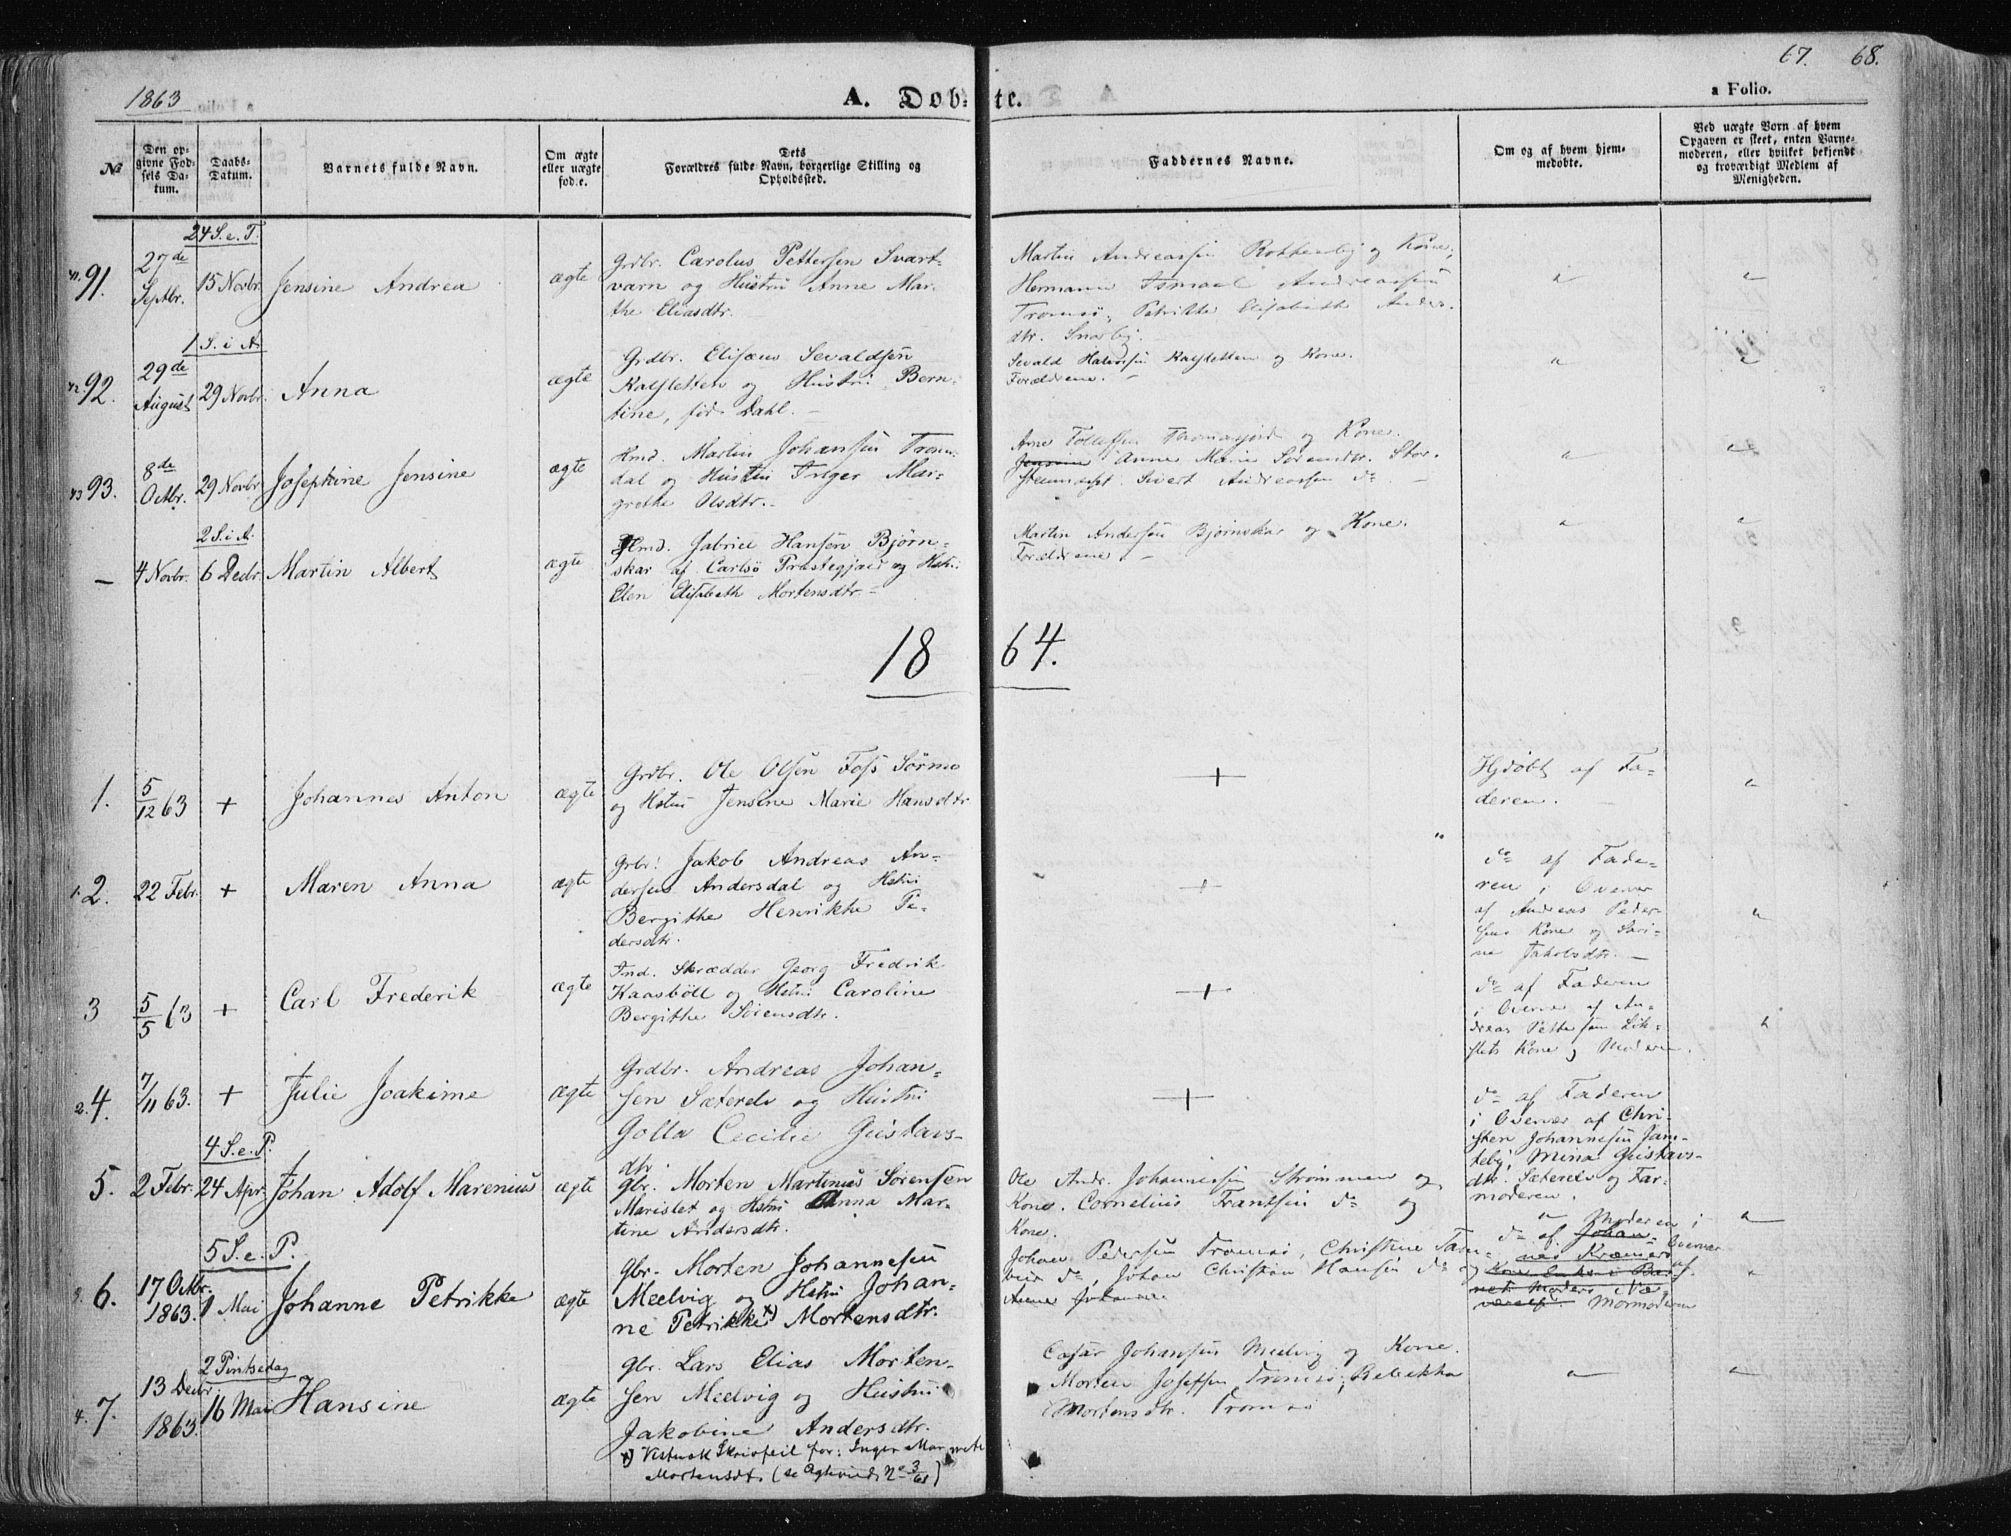 1863
A. Døbte.
67. 68.
a Folio.
№
Den opgivne Fødsels Datum.
Daabs-Datum.
Barnets fulde Navn.
Om ægte eller uægte fød.e.
Dets Forældres fulde Navn, borgerlige Stilling og Opholdssted.
Faddernes Navne.
Om og af hvem hjemmedøbte.
Ved uægte Børn af hvem Opgaven er skeet, enten Barnemoderen, eller hvilket bekjendt og troværdigt Medlem af Menigheden.
24 S. e. T.
91. 27de Septbr. 15 Novbr. Jensine Andrea ægte
Grdbr. Carolus Pettersen Svart-
varn og Hustru Anne Mar-
the Eliasdtr.
Martin Andreassen og Kone,
Hermann Ismael Andreassen
Tromsø, Petrikke Elisabeth Anders-
dtr. Snarby.
1 S. i A.
92. 29de August 29 Novbr. Anna ægte
Grdbr. Elisæus Sevaldsen
Kalsletten og Hustru Bern-
tine, fød Dahl.
Sevald Halvorsen Kalsletten og Kone.
Forældrene.
93. 8de Octbr. 29 Novbr. Josephine Jensine ægte
Hmd. Martin Johansen Troms-
dal og Hustru Inger Mar-
grethe Olsdtr.
Arne Tollefsen Thomasjord og Kone.
Anne Marie Sørensdtr. Stor-
Sivert Andreassen do
2 S. i A.
– 4 Novbr. 6 Decbr. Martin Albert ægte
Hmd. Gabriel Hansen Bjørn-
skar af Carlsø Præstegjæld og Hstru
Elen Elisabeth Mortensdtr.
Martin Andersen Bjørnskar og Kone.
Forældrene
1864.
1. 5/12 63 + Johannes Anton ægte
Grdbr. Ole Olsen Foss Sørmo
og Hstru Jensine Marie Hansdtr
+
Hjdøbt af Fa-
deren.
2. 22 Febr. + Maren Anna ægte
Grbr. Jakob Andreas An-
dersen Andersdal og Hstru
Bergithe Henrikke Pe-
dersdtr.
+
do af Fade-
ren i Overvær
af Andreas Peder-
sens Kone og Sari-
ne Jakobsdtr.
3 5/5 63 + Carl Frederik ægte
Ind. Skrædder Georg Fredrik
Kaasböll og Hstru Caroline
Bergithe Sörensdtr.
+
do af Faderen
i Overvær af An-
dreas Pettersen Lik-
slets Kone og Moderen.
4. 7/11 63. + Julie Joakime ægte
Grdbr. Andreas Johan-
sen Sæterelv og Hustru
Golla Cecilie Gustavs-
dtr.
+
do af Faderen
i Overvær af Chri-
sten Johannesen
Mina Gustavs-
dtr. Sæterelv og Far-
moderen.
4 S. e. P.
5. 2 Febr. 24 Apr. Johan Adolf Marenius ægte
Gbr. Morten Martinus Sörensen
Marislet og Hstru Anna Mar-
tine Andersdtr.
Ole Andr. Johannessen Strømmen og
Kone. Cornelius Frantsen do og
Kone.
5 S. e. P.
6. 17 Octbr. 1863. 1 Mai Johanne Petrikke ægte
Gbr. Morten Johannesen
Meelvig og Hstru Johan-
ne Petrikke x) Mortensdtr.
Johan Pedersen Tromsø, Christine
do, Johan Christian Hansen do og
Anne Johanne
do af Moderen i Overvær
af Mormoderen
2 Pintsedag
7. 13 Decbr 1863. 16 Mai Hansine ægte
Gbr. Lars Elias Morten-
sen Meelvig og Hustru
Jakobine Andersdtr.
Cæsar Johansen Meelvig og Kone.
Morten Josefsen Tromsø, Rebekka
Mortensdtr. Tromsø
x) Vistnok Skrivfeil for: Inger Margrete
Mortensdt. (se Ægteviede No 3/61)